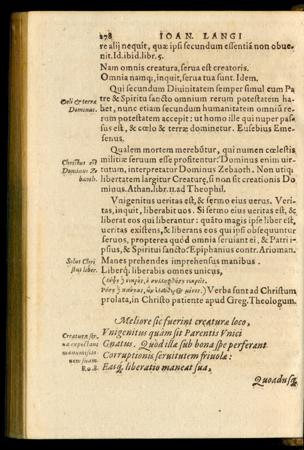 278 IOAN. LANGI
re alij nequit, quæ ipsi secundum essentiã non obue-
nit. Id. ibid. libr. 5.
Nam omnis creatura, serua est creatoris.
Omnia namq;, inquit, serua tua sunt. Idem.
Cœli & terræ
Dominus.
Qui secundum Diuinitatem semper simul cum Pa
tre & Spiritu sancto omnium rerum potestatem ha-
biet, nunc etiam secundum humanitatem omniũ re-
rum potestatem accepit: ut homo ille qui nuper pas
sus est, & cœlo & terræ dominetur. Eusebius Eme-
senus.
Christus est
Dominus Ze
baoth.
Qualem mortem merebũtur, qui numen cœlestis
militiæ seruum esse profitentur? Dominus enim uir-
tutum, interpretatur Dominus Zebaoth. Non utiq;
libertatem largitur Creaturæ, si non sit creationis Do
minus. Athan. libr. 11. ad Theophil.
Vnigenitus ueritas est, & sermo eius uerus. Veri-
tas, inquit, liberabit uos. Si sermo eius ueritas est, &
liberat eos qui liberantur: quãto magis ipse liber est,
ueritas existens, & liberans eos qui ipsi obsequuntur
seruos, propterea quòd omnia seruiant ei, & Patri i-
psius, & Spiritui sancto. Epiphanius contr. Arioman.
Solus Chri
stus liber.
Manes prehendes imprehensus manibus.
Liberq; liberabis omnes unicus,
Verba sunt ad Christum
prolata, in Christo patiente apud Greg. Theologum.
Meliore sic fuerint creaturæ loco,
Vnigenitus quàm sit Parentis Vnici
Creaturæ ser-
uæ expectant
manumissio-
nem suam.
Ro. 8.
Gnatus. Quòd illæ sub bona spe perferant
Corruptionis seruitutem friuolæ:
Eatq; liberatio maneat sua,
Quoadusq;